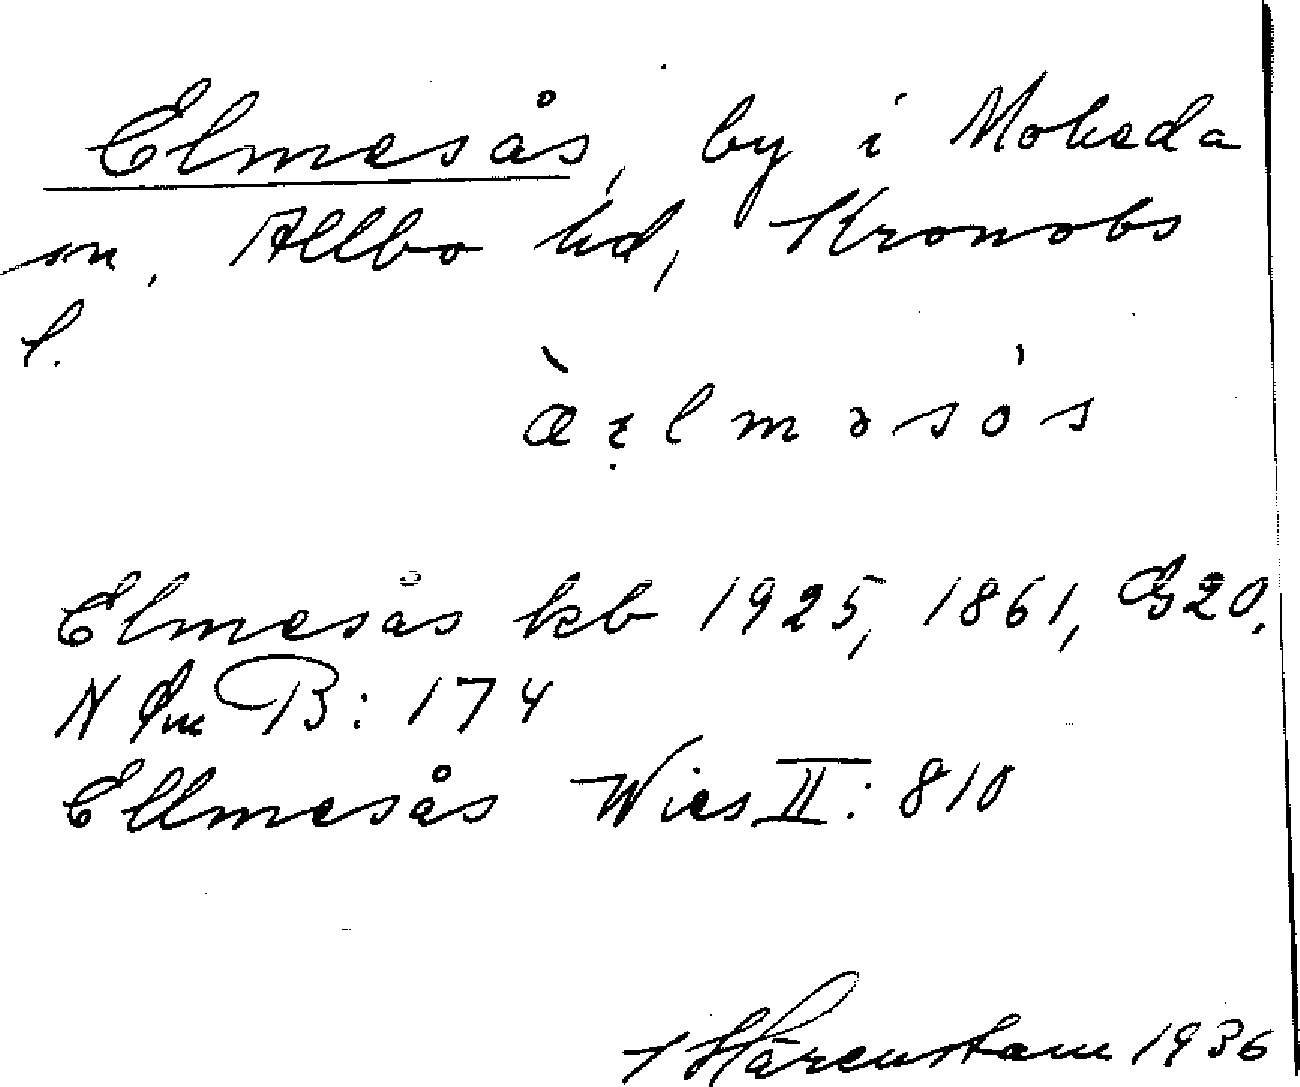 Elmesås, by i Moheda
sn, Allbo hd, Kronobs
l.
Elmesås kb 1925, 1861, G20,
B: 174
Ellmesås Wies II: 810
Härenstam 1936